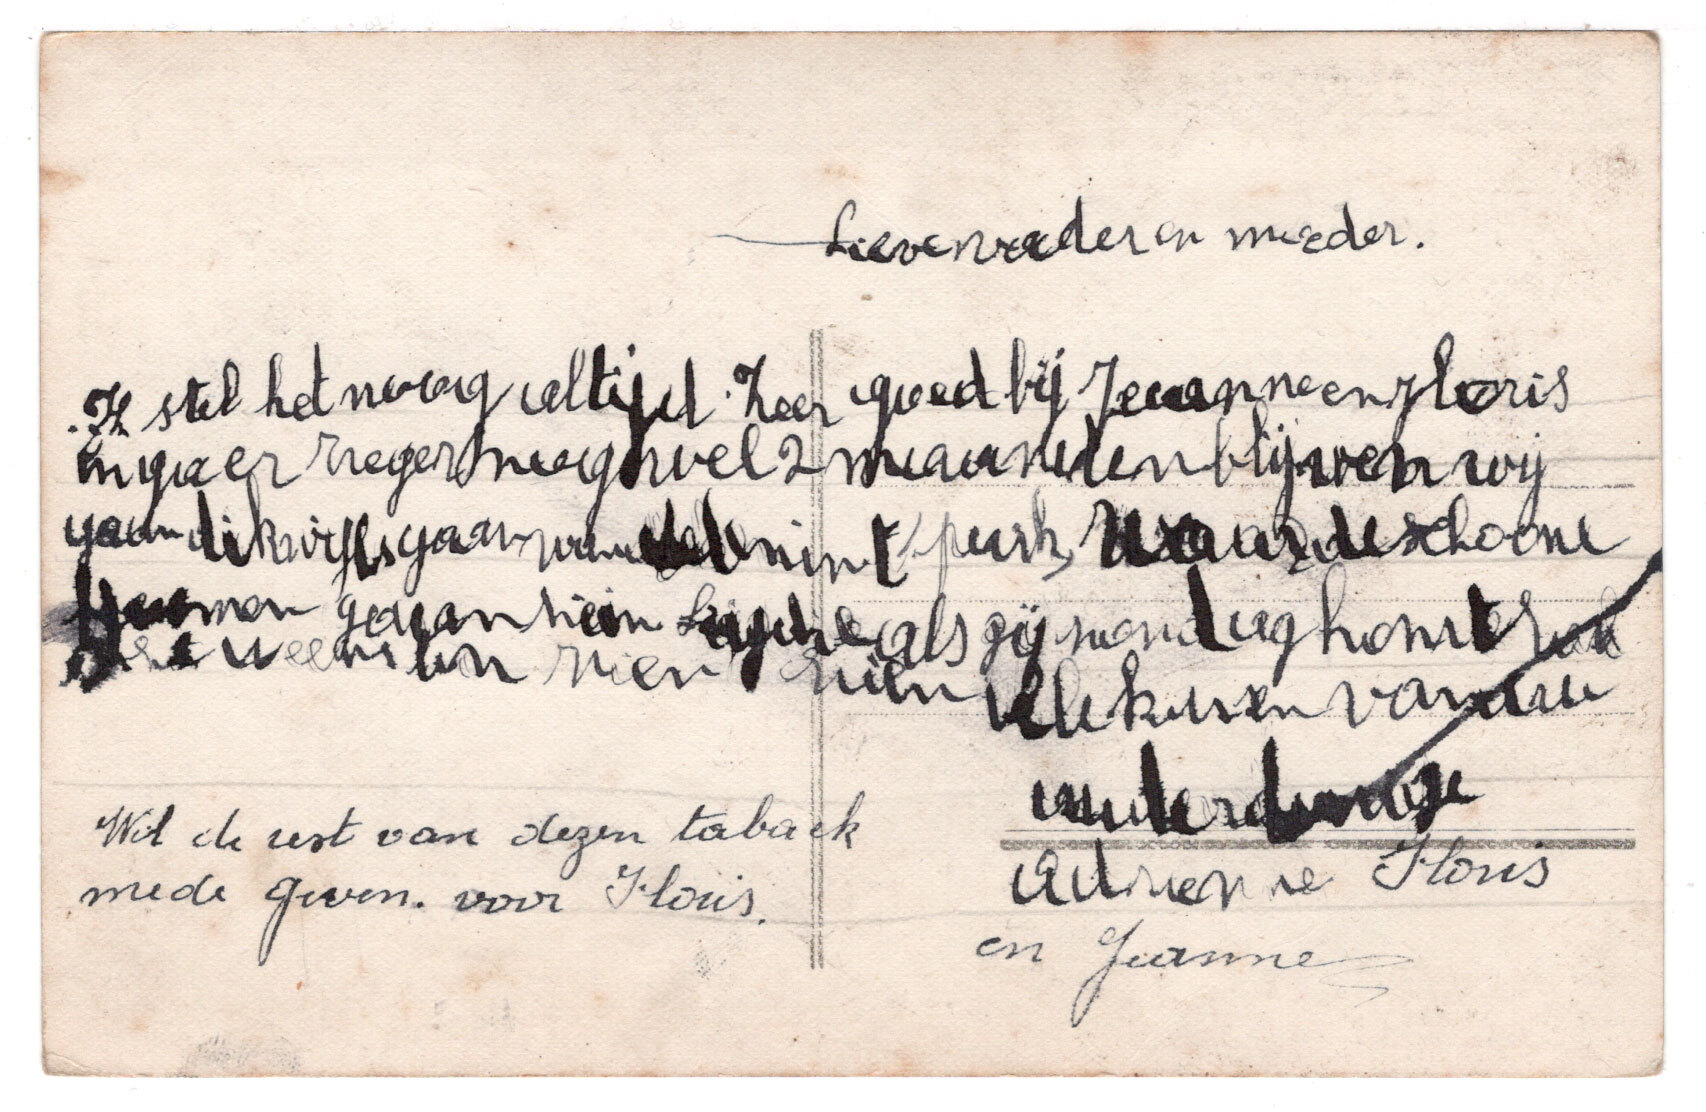 Lieven vader en moeder.
Ik stel het noog altijd zeer goed bij Jeanne en Floris
en ga er zeger noog wel 2 maanden blijven wij
gaan dikwijls gaan wandelen in t park, naar de schoone
bloemen gaan zien als gij zondag komt
zien vele kussen van uw
Adrienne Floris
en Jeanne
Wil de rest van dezen taback
mede geven. voor Floris.